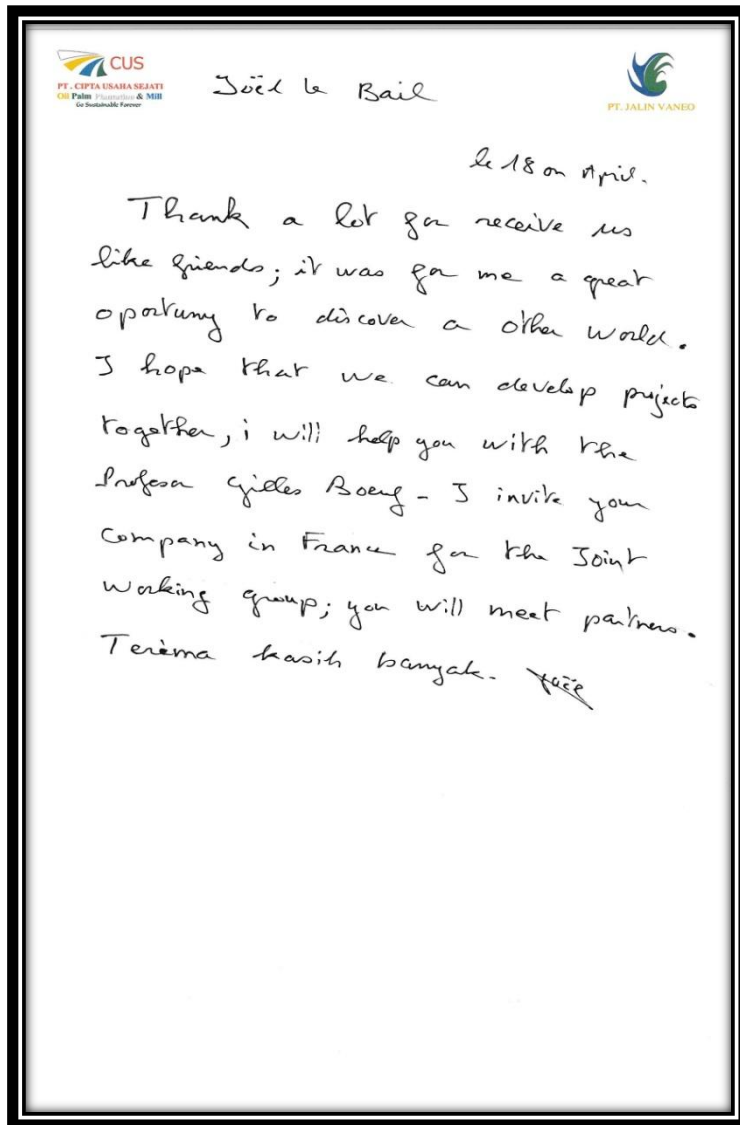 CUS
PT. CIPTA USAHA SEJATI
Oil Palm Plantation & Mill
Go Sustainable Forever
PT. JALIN VANEO
Joël le Bail
le 18 on April.
Thank a lot for receive us
like friends; it was for me a great
oportuny to discover a other world.
I hope that we can develop projects
together, i will help you with the
Profesor Gilles Boeuf - I invite your
company in France for the Joint
working group; you will meet partners.
Terima kasih banyak. Joël